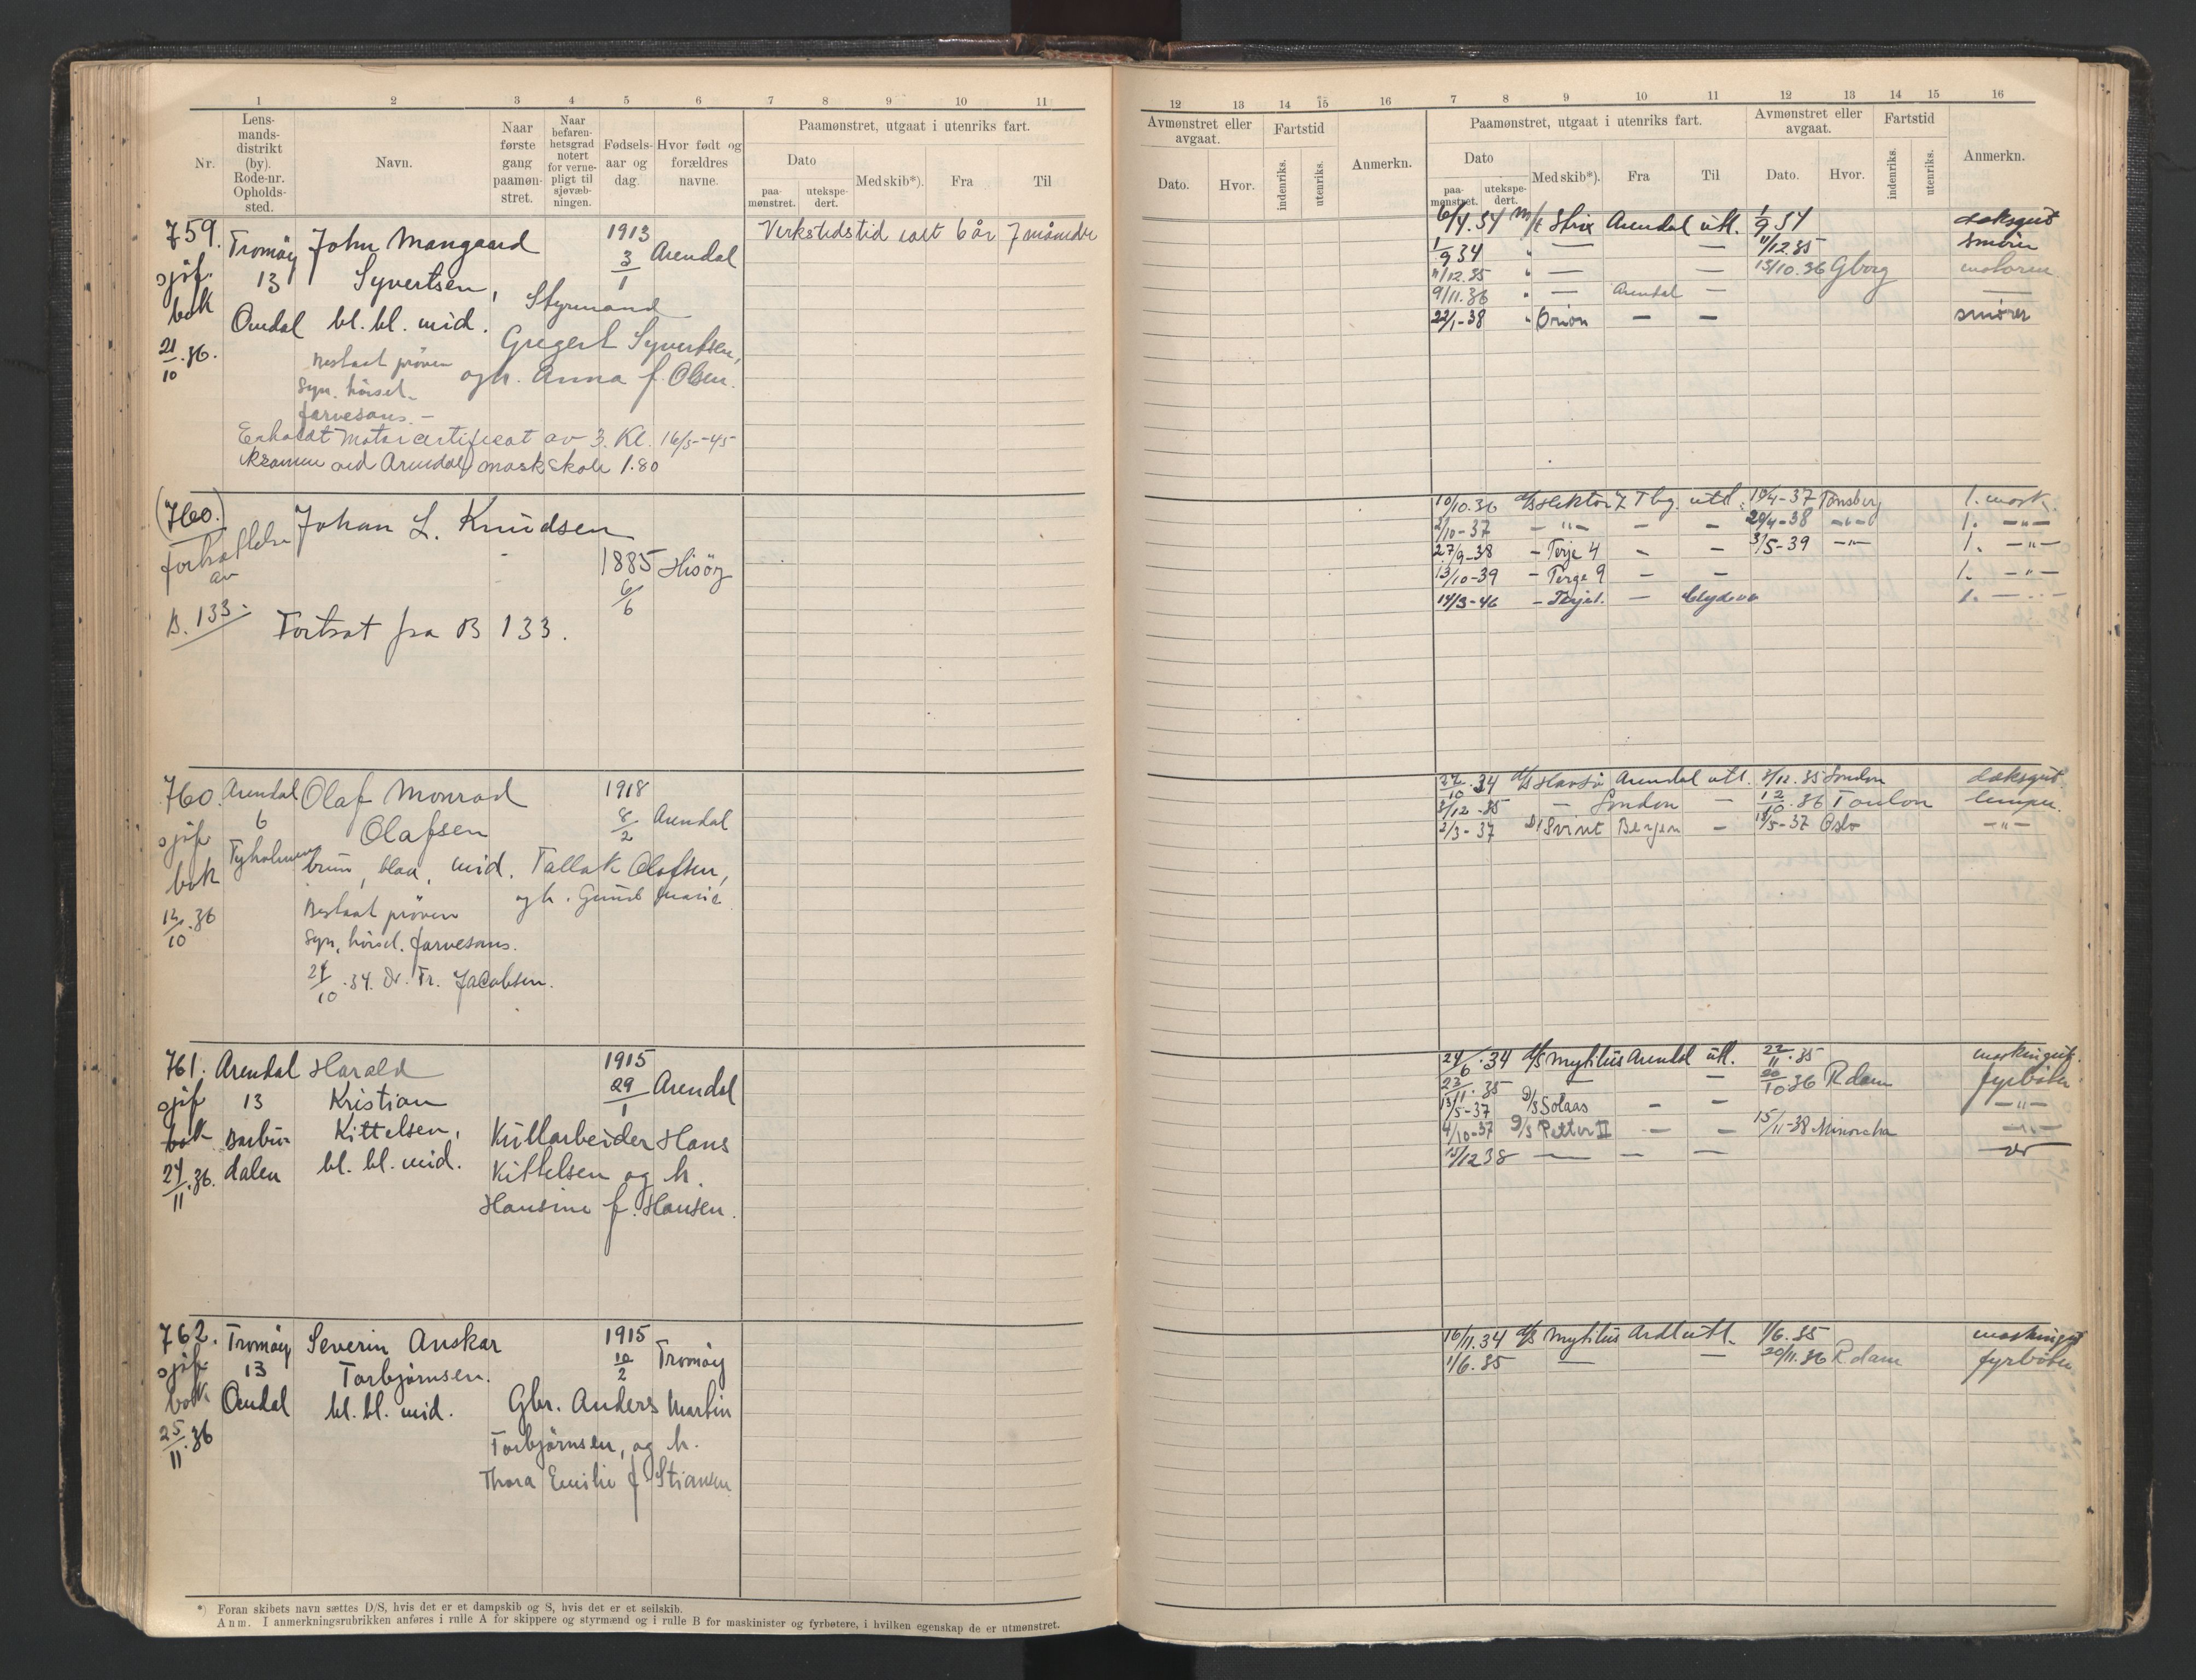 1 2 3 4 5 6 7 8 9 10 11
Nr.
Lens-
mands-
distrikt
(by).
Rode-nr.
Opholds-
sted.
Navn.
Naar
første
gang
paamøn-
stret.
Naar
befaren-
hetsgrad
notert
for verne-
pligt til
sjøvæb-
ningen.
Fødsels-
aar og
dag.
Hvor født og
forældres
navne.
Paamønstret, utgaat i utenriks fart.
Dato
paa-
mønstret.
utekspe-
dert.
Med skib*).
Fra
Til
759. Tromøy John Mangaard 1913 Verkstedstid ialt 6 år 7 måneder
sjøf. 13 Syvertsen, 3/1 Arendal
bok Omdal bl. bl. mid. Styrmand
21/10.36. Gregert Syvertsen,
Bestaat prøven og h. Anna f. Olsen.
Syn. hørsel.
farvesans. –
Erholdt Motorcertificat av 3. Kl. 16/5-45
Eksamen ved Arendal maskskole 1.80
(760.) Johan L. Knudsen
fortsettelse 1885 Hisöy
av 6/6
B. 133 Fortsat fra B 133.
760. Arendal Olaf Monrad 1918
sjøf 6 Olafsen 8/2 Arendal
bok Tyholmen brun, blaa, mid. Tallak Olafsen,
12/10.36 Bestaat prøven og h. Gunda Marie
Syn, hørsel. farvesans.
24/10.34. Dr. Fr. Jacobsen.
761. Arendal Harald 1915
sjøf 13 Kristian 29/1 Arendal
bok Barbu- Kittelsen, Kullarbeider Hans
24/11.36. dalen bl. bl. mid. Kittelsen og h.
Hansine f. Hansen.
762. Tromøy Severin Anskar 1915
sjøf 13 Torbjørnsen. 10/2 Tromøy
bok Omdal bl. bl. mid. Gbr. Anders Martin
25/11.36 Torbjørnsen, og h.
Thora Emilie f. Stiansen
*) Foran skibets navn sættes D/S, hvis det er et dampskib og S, hvis det er et seilskib.
Anm. I anmerkningsrubrikken anføres i rulle A for skippere og styrmænd og i rulle B for maskinister og fyrbøtere, i hvilken egenskap de er utmønstret.
12 13 14 15 16 7 8 9 10 11 12 13 14 15 16
Avmønstret eller
avgaat.
Dato.
Hvor.
Fartstid
indenriks.
utenriks.
Anmerkn.
Paamønstret, utgaat i utenriks fart.
Dato
paa-
mønstret.
utekspe-
dert.
Med skib*).
Fra
Til
Avmønstret eller
avgaat.
Dato.
Hvor.
Fartstid
indenriks.
utenriks.
Anmerkn.
6/4.34 M/T Strix Arendal utl. 1/9 34 daksgut
1/9 34 " — — 11/12.35 smører
11/12.35 " — — 13/10.36 Gborg motorm.
9/11.36 " — Arendal — —
22/1-38 " Orion — — smører
10/10.36 d/s Hektor 7 Tbg. utl. 19/4-37 Tønsberg 1. mask.
2/10-37 – " – – – 20/4-38 – " – 1. – " –
27/9-38 – Terje 4 – – 31/5-39 – " – 1. – " –
13/10-39 – Terge 9 – – 1. – " –
14/3-46 – – 1. – " –
24/10.34 d/s Havsö Arendal utl. 3/12.35 London daksgut.
3/12.35 — London — 12/10.36 Toulon lemper.
2/3-37 D/ Svint Bergen – 18/5-37 Oslo – " –
24/6.34 d/s Mytilus Arendal utl. 22/11.35 maskingut.
22/11.35 — — 20/10.36 R dam fyrbøter
13/5-37 D/S Solaas – – – " –
4/10-37 D/S Petter II — — 15/11-38 – " –
15/12 38 — — —
16/11.34 d/s Mytilus Ardl utl. 1/6.35 maskingut
1/6.35 — — 20/11.36 R dam fyrbøter